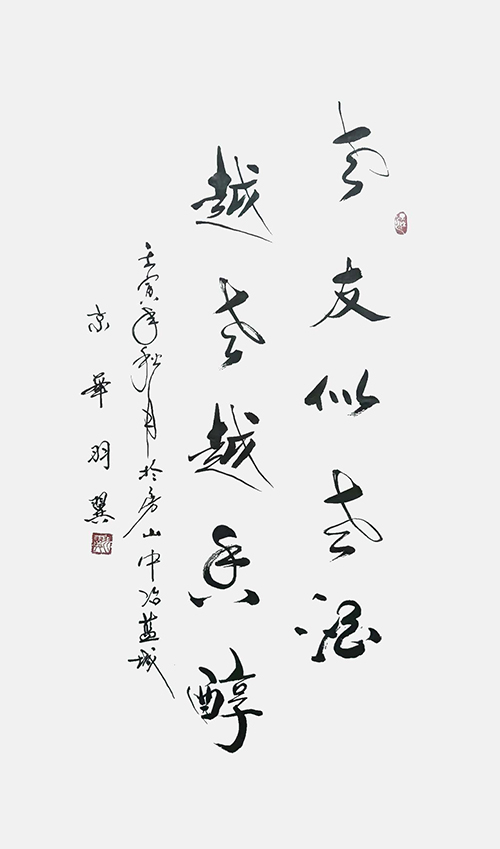 老友似老酒
越老越香醇
壬寅年秋月於房山中冶蓝城
京華羽翼